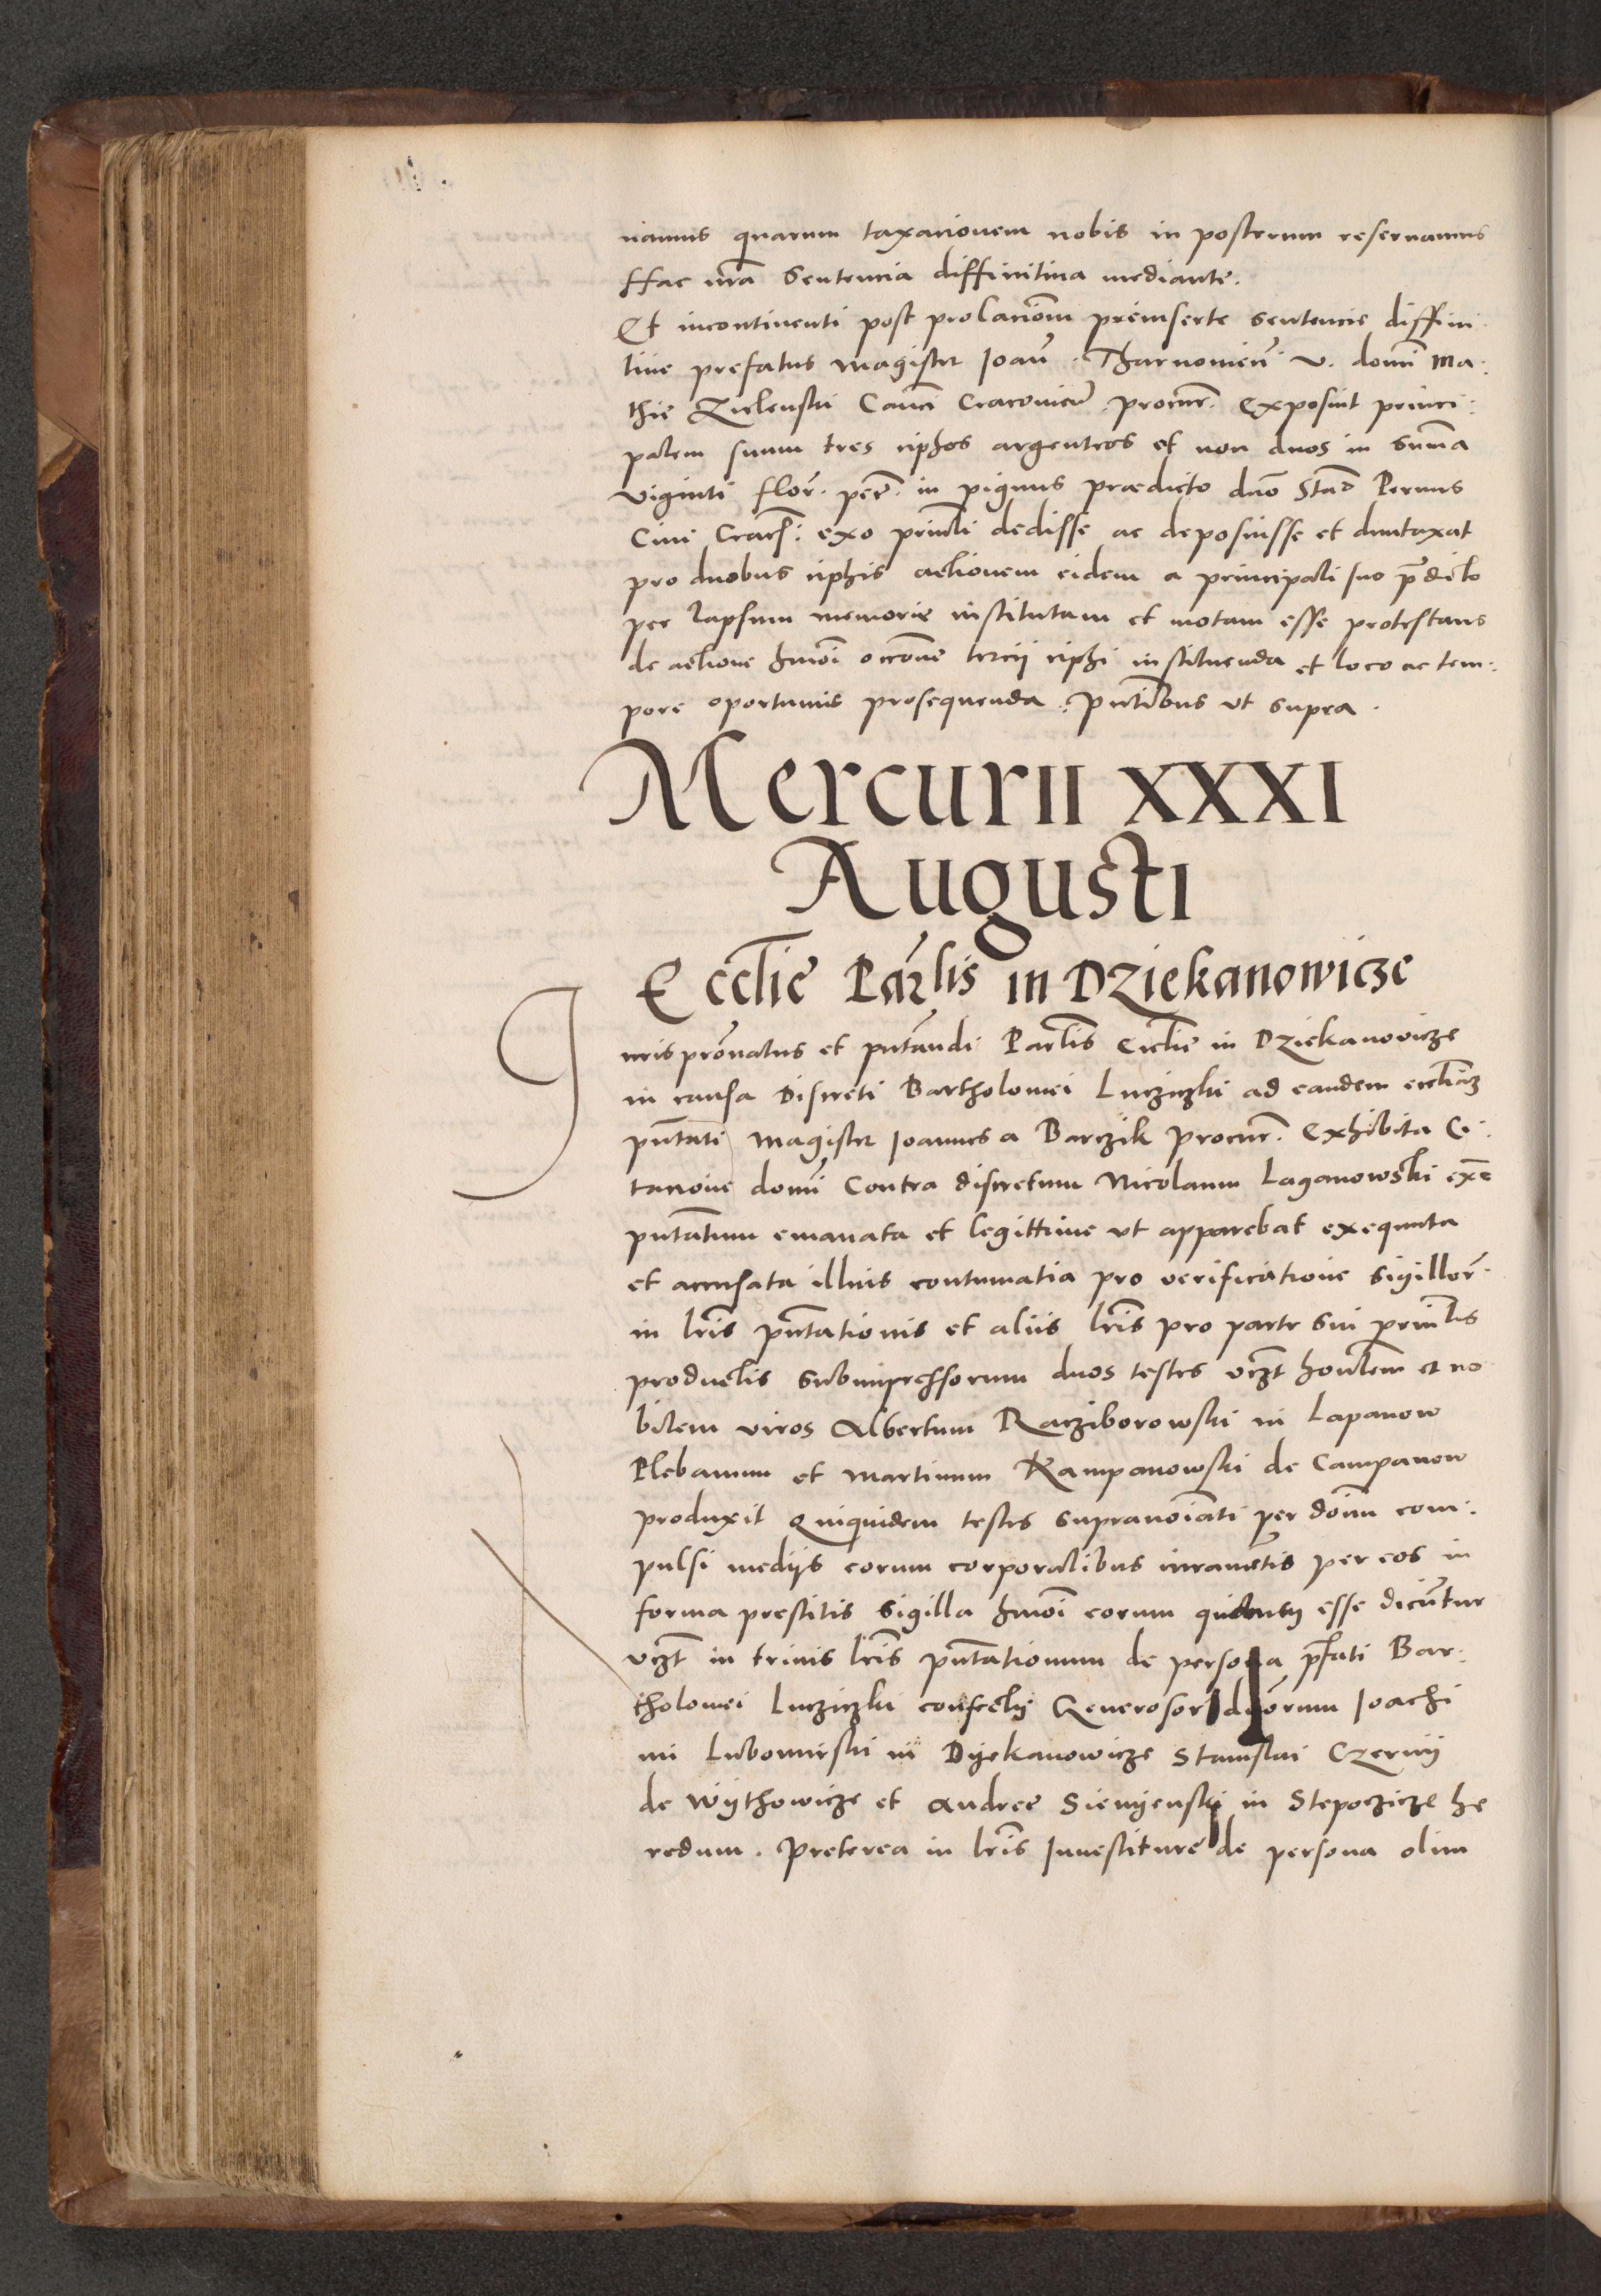 namus quarum taxacionem nobis in posterum reseruamus
Hac nr̄a Sententia diffinitiua mediante.
Et incontinenti post prolacionē preinserte sentencie diffini:
tiue prefatus magister Joan̄. Tharnouien̄. V. domi Ma:
thie Zielenski Canci Cracouien̄. procur. exposuit princi:
palem suum tres ciphos argenteos et non duos in sūma
viginti flor. per. in pignus prædicto dn̄o Sta Pernus
Ciui Crac̄. exo prin̄li dedisse ac deposuisse et duntaxat
pro duobus ciphis actionem eidem a principali suo p̄dicto
per lapsum memorie institutam et motam esse protestans
de actione hm̄oi occōne tercij ciphi instituenda et loco ac tem:
pore oportunis prosequenda. Pn̄tibus vt supra.
Mercurii XXXI
Augusti
Ecclīe Par̄lis in Dziekanowicze
Juris prōnatus et pn̄tandi Parl̄is Ecclīe in Dziekanovicze
in causa Discreti Bartholomei Lucziczki ad eandem ecclīaz
pn̄tati Magister Joannes a Barczik procur. Exhibita Ci:
tacione domī Contra discretum Nicolaum Laganowski ex̄e
pn̄tatum emanata et legittime vt apparebat exequuta
et accusata illius contumatia pro verificatione sigillor̄.
in lr̄is pn̄tationis et aliis lr̄is pro parte sui prin̄lis
productis subimpressorum duos testes vczt hon̄lem et no
bilem viros Albertum Racziborowski in Lapanow
Plebanum et Martinum Kampanowski de Campanow
produxit Quiquidem testes supranoīati per dom̄ com:
pulsi medijs eorum corporalibus iuramētis per eos in
forma prestitis sigilla hm̄oi eorum quorum esse dicūtur
vczt in trinis lr̄is pn̄tationum de persona p̄fati Bar:
tholomei Lucziczki confectis Generosor dn̄orum Joachi
mi Lubomirski in Dyekanowicze Stanislai Czerny
de Wythowicze et Andree Sienyenski in Stepoczicze he
redum. Preterea in lr̄is Inuestiture de persona olim